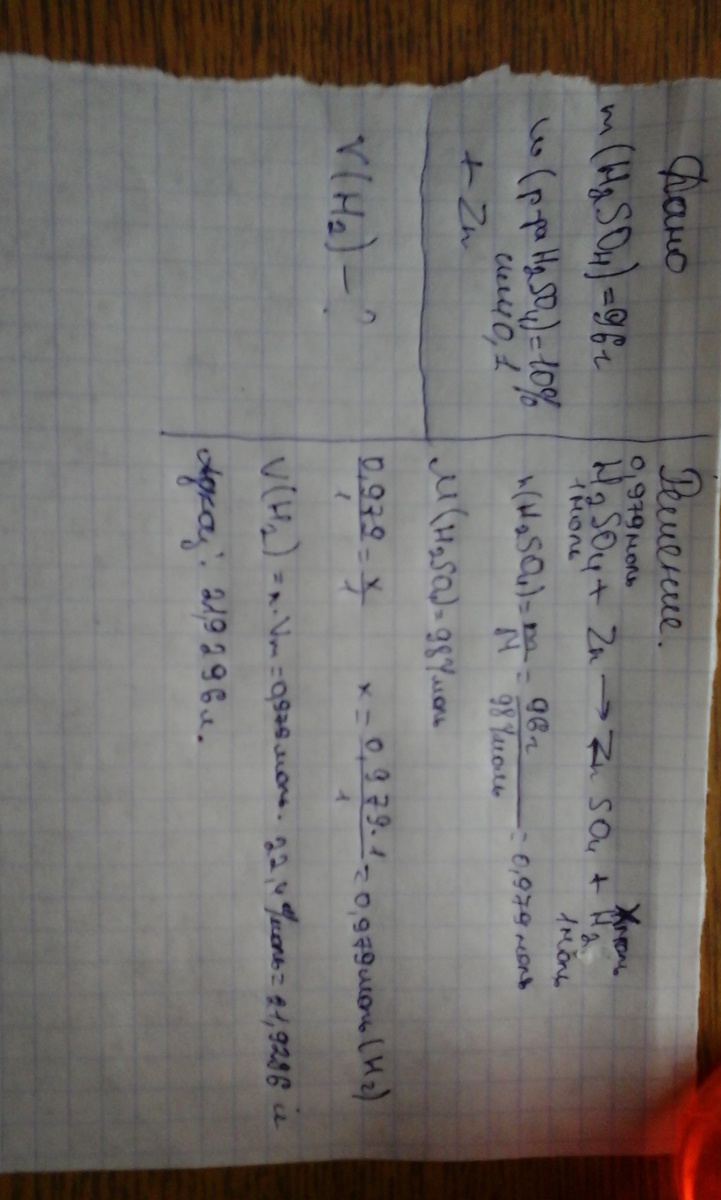 Дано
m(H₂SO₄)=96г
ω(р-ра H₂SO₄)=10%
или 0,1
+ Zn
V(H₂) - ?
Решение.
0,979моль Xмоль
H₂SO₄ + Zn → ZnSO₄ + H₂
1моль 1моль
n(H₂SO₄) = m/M = 96г/98г/моль = 0,979моль
M(H₂SO₄)=98г/моль
0,979/1 = x/1 x = 0,979·1/1 = 0,979моль(H₂)
V(H₂) = n·Vm = 0,979моль·22,4л/моль = 21,9296 л
21,9296л.